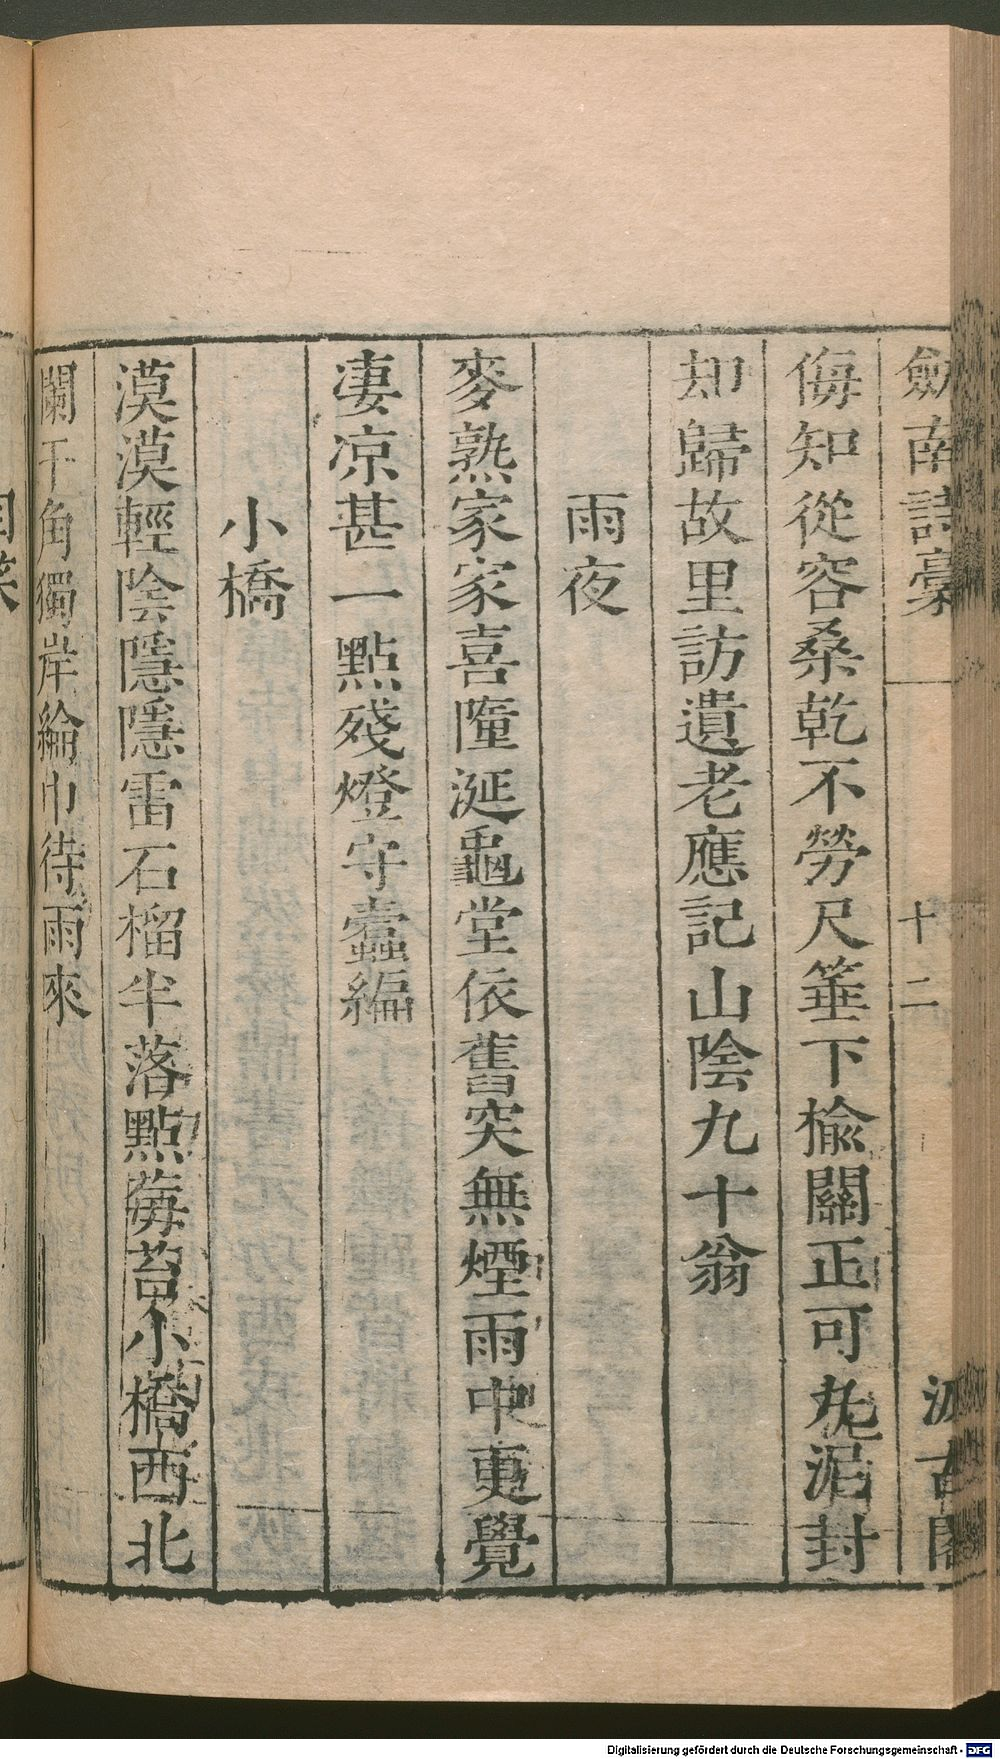 劒南詩藳
十二
汲古閣
侮知從容桑乾不勞尺箠下榆關正可丸泥封
却歸故里訪遺老應記山陰九十翁
雨夜
麥熟家家喜隆涎龜堂依舊突無煙雨中更覺
凄凉甚一點殘燈守蠹編
小橋
漠漠輕陰隱隱雷石榴半落點莓苔小橋西北
闌干角獨岸綸巾待雨來
自笑
Digitalisierung gefördert durch die Deutsche Forschungsgemeinschaft - DFG